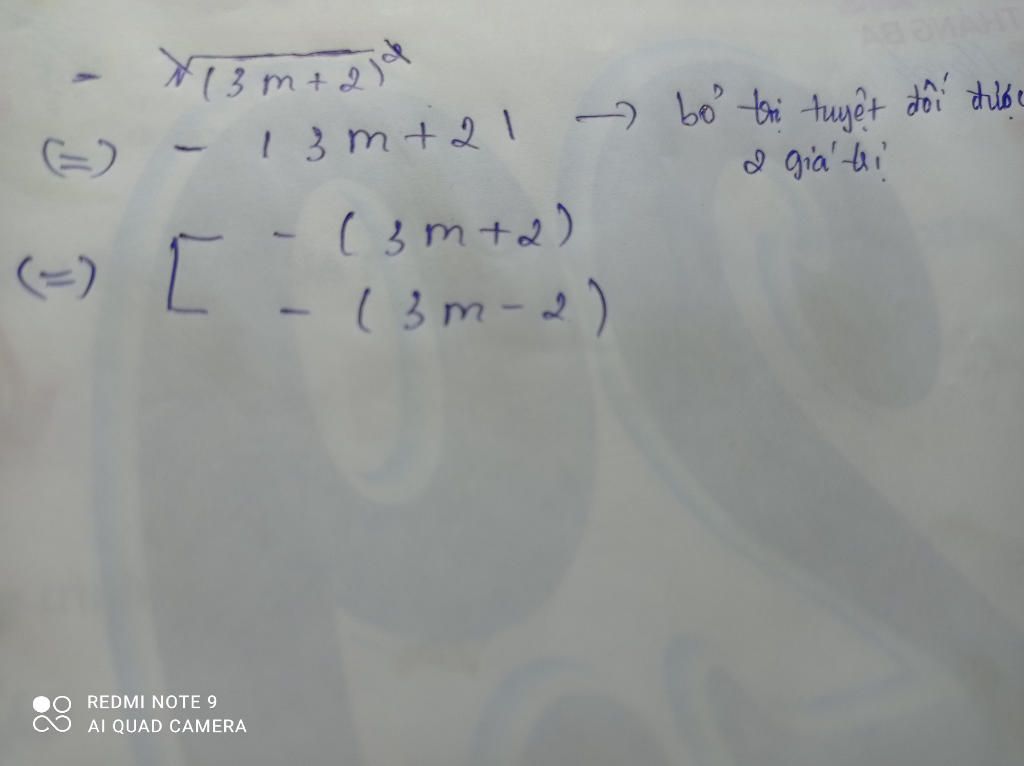 - √(3m+2)²
(=) - |3m+2| → bỏ trị tuyệt đối được
2 giá trị
(=) [ - (3m+2)
- (3m-2)
REDMI NOTE 9
AI QUAD CAMERA